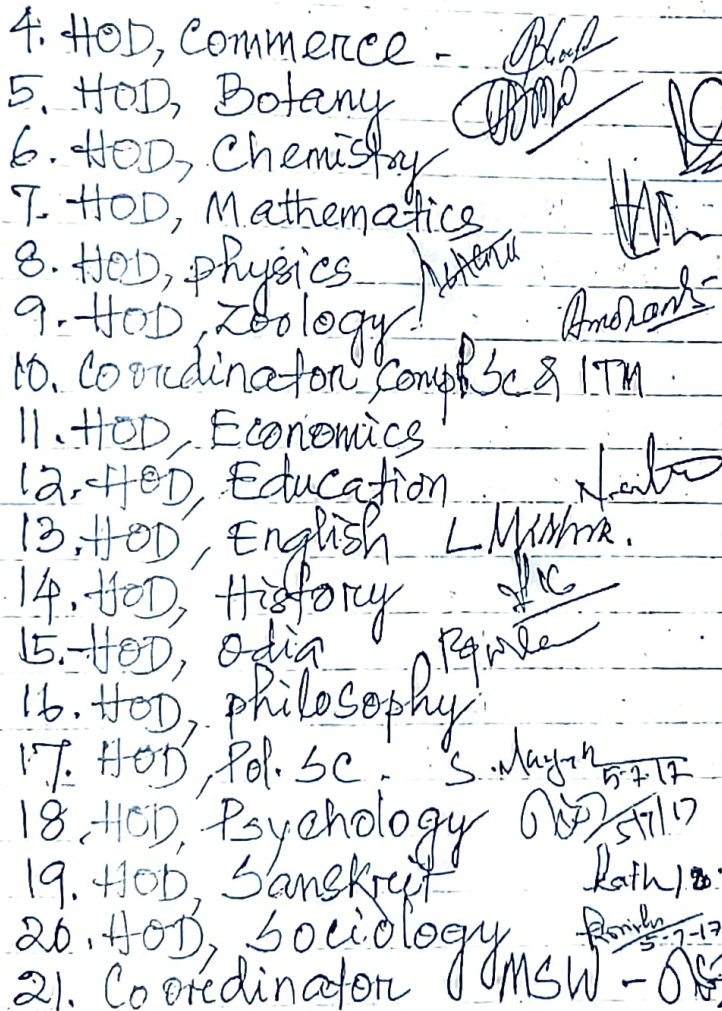 4. HOD, Commerce -
5. HOD, Botany
6. HOD, Chemistry
7. HOD, Mathematics
8. HOD, physics
9. HOD, Zoology
10. Coordinator Comp. Sc & ITM
11. HOD, Economics
12. HOD, Education
13. HOD, English L Mishra.
14. HOD, History
15. HOD, Odia
16. HOD, philosophy
17. HOD, Pol. Sc. S. 5-7-17
18. HOD, Psychology 5/7/17
19. HOD, Sanskrit Rath
20. HOD, Sociology 5-7-17
21. Coordinator MSW -